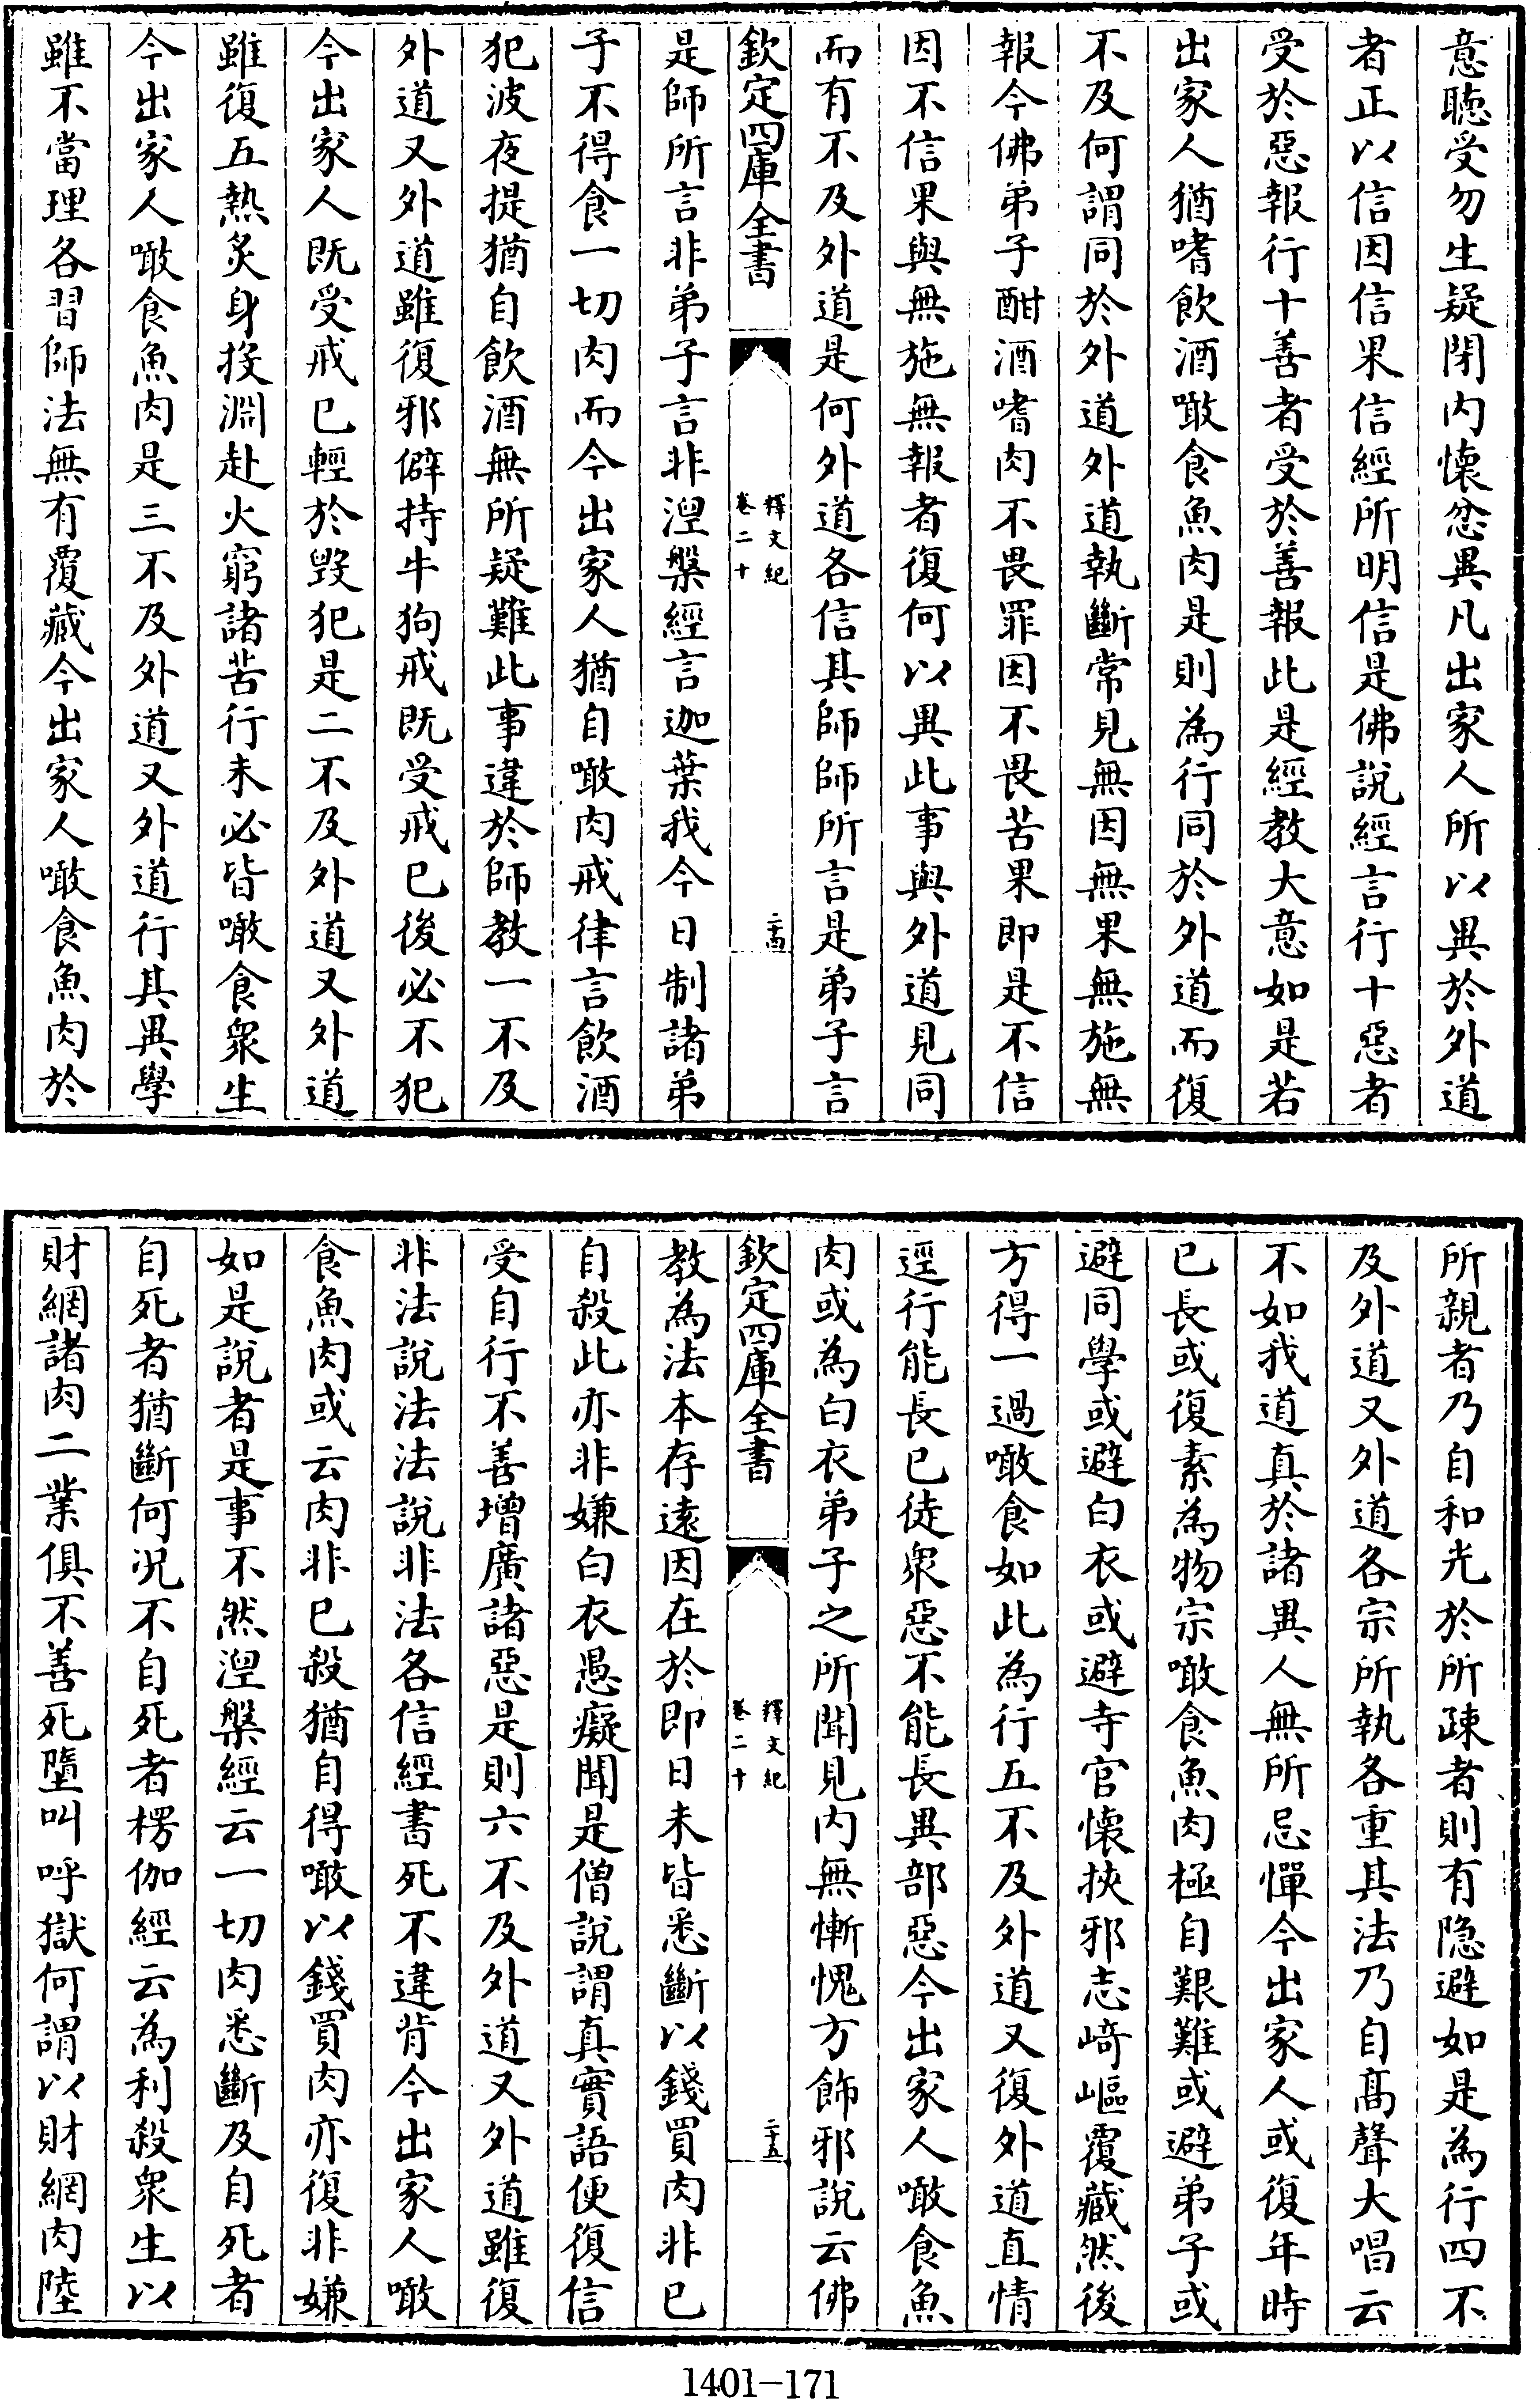 意聽受勿生疑閉内懐忿異凡出家人所以異於外道
者正以信因信果信經所明信是佛說經言行十惡者
受於惡報行十善者受於善報此是經教大意如是若
出家人猶嗜飲酒噉食魚肉是則為行同於外道而復
不及何謂同於外道外道執斷常見無因無果無施無
報今佛弟子酣酒嗜肉不畏罪因不畏苦果即是不信
因不信果與無施無報者復何以異此事與外道見同
而有不及外道是何外道各信其師師所言是弟子言
欽定四庫全書
釋文紀
卷二十
二十四
是師所言非弟子言非涅槃經言迦葉我今日制諸弟
子不得食一切肉而今出家人猶自噉肉戒律言飲酒
犯波夜提猶自飲酒無所疑難此事違於師教一不及
外道又外道雖復邪僻持牛狗戒既受戒已後必不犯
今出家人既受戒已輕於毀犯是二不及外道又外道
雖復五熱炙身投淵赴火窮諸苦行未必皆噉食衆生
今出家人噉食魚肉是三不及外道又外道行其異學
雖不當理各習師法無有覆藏今出家人噉食魚肉於
所親者乃自和光於所疎者則有隠避如是為行四不
及外道又外道各宗所執各重其法乃自髙聲大唱云
不如我道真於諸異人無所忌憚今出家人或復年時
已長或復素為物宗噉食魚肉極自艱難或避弟子或
避同學或避白衣或避寺官懐挾邪志崎嶇覆藏然後
方得一過噉食如此為行五不及外道又復外道直情
逕行能長已徒衆惡不能長異部惡今出家人噉食魚
肉或為白衣弟子之所聞見内無慚愧方飾邪說云佛
欽定四庫全書
釋文紀
卷二十
二十五
教為法本存遠因在於即日未皆悉斷以錢買肉非已
自殺此亦非嫌白衣愚癡聞是僧說謂真實語便復信
受自行不善增廣諸惡是則六不及外道又外道雖復
非法說法法說非法各信經書死不違背今出家人噉
食魚肉或云肉非已殺猶自得噉以錢買肉亦復非嫌
如是說者是事不然涅槃經云一切肉悉斷及自死者
自死者猶斷何况不自死者楞伽經云為利殺衆生以
財網諸肉二業俱不善死墮叫呼獄何謂以財網肉陸
1401-171